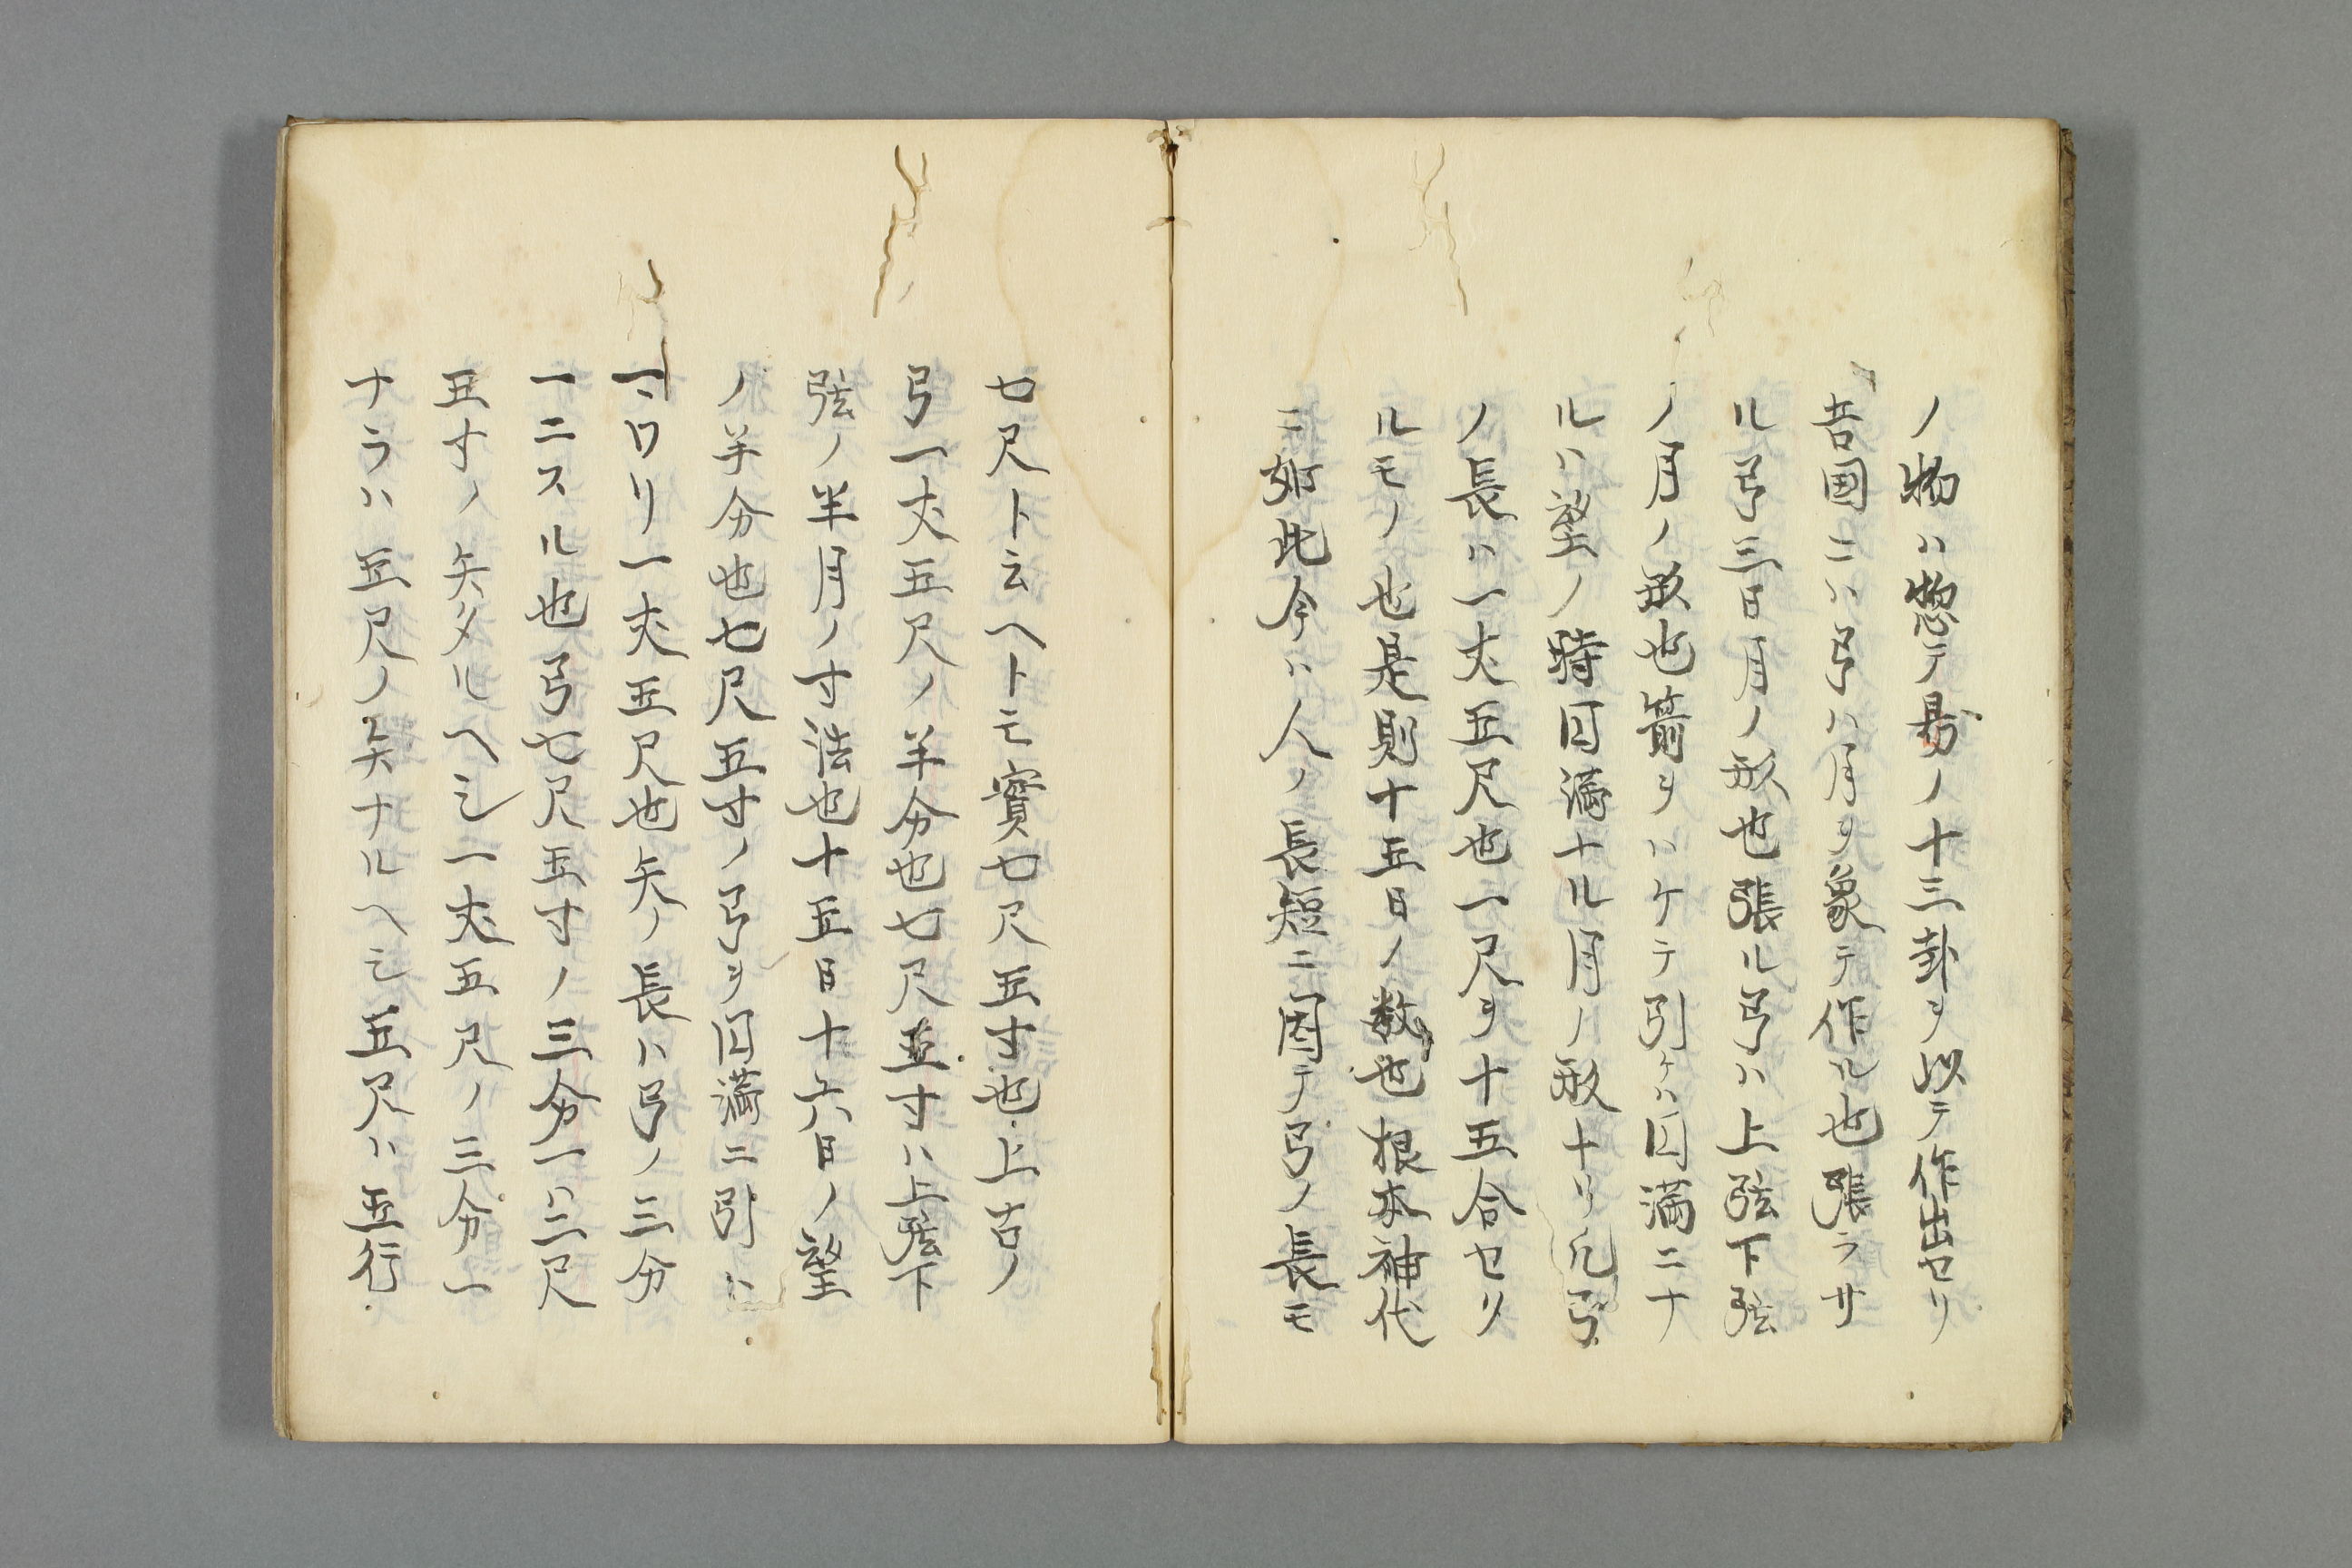 ノ物ハ惣テ易ノ十三卦ヲ以テ作出セリ
吾國ニハ弓ハ月ヲ象テ作ル也張ラサ
ル弓三日月ノ形也張ル弓ハ上弦下弦
ノ月ノ形也箭ヲハケテ引ケハ円満ニナ
ルハ望ノ時円満ナル月ノ形ナリ元弓
ノ長ハ一丈五尺也一尺ヲ十五合セリ
ルモノ也是則十五日ノ数也根本神代
ニ如此今ハ人ノ長短ニ因テ弓ノ長モ
七尺ト云ヘトモ實七尺五寸也上古ノ
弓一丈五尺ノ半分也七尺五寸ハ上弦下
弦ノ半月ノ寸法也十五日十六日ノ望
ノ半分也七尺五寸ノ弓ヲ円満ニ引ハ
ワリ一丈五尺也矢ノ長ハ弓ノ三分
一ニスル也弓七尺五寸ノ三分一ハ二尺
五寸ノ矢タルヘシ一丈五尺ノ三分一
ナラハ五尺ノ矢ナルヘシ五尺ハ五行